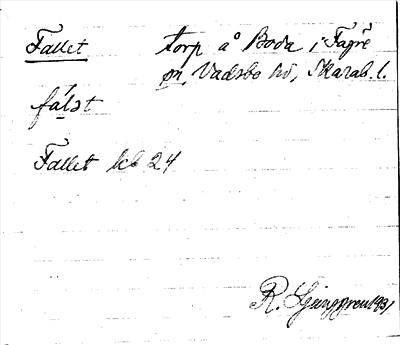 Fallet torp å Boda i Fagre
sn, Vadsbo hd, Skarab. l.
fálst
Fallet kb 24
R. Ljunggren 1931